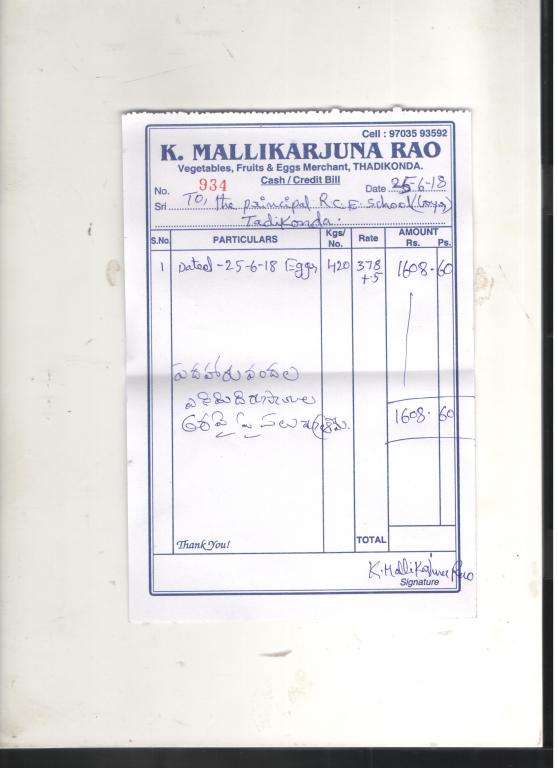 Cell : 97035 93592
K. MALLIKARJUNA RAO
Vegetables, Fruits & Eggs Merchant, THADIKONDA.
Cash / Credit Bill
No. 934 Date 25-6-18
Sri To, the principal R.C.E. School (Boys)
Tadikonda.
S.No. PARTICULARS Kgs/ No. Rate AMOUNT Rs. Ps.
1 Dated -25-6-18 Eggs 420 378 +5 1608. 60
పదహారు వందల
ఎనిమిది రూపాయలు
అరవై పైసలు మాత్రమే.
1608. 60
Thank You!
TOTAL
K. Mallikarjuna Rao
Signature